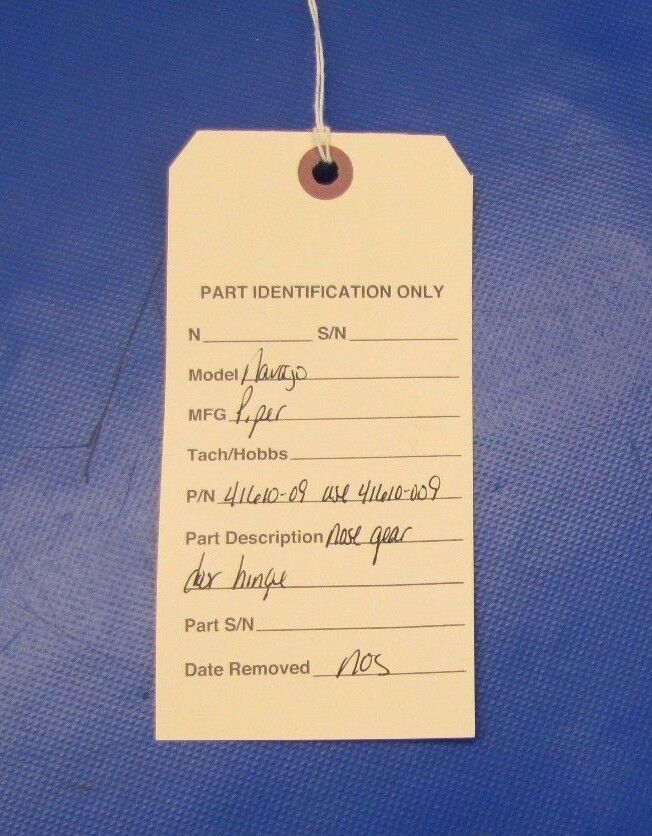 PART IDENTIFICATION ONLY
N S/N
Model Navajo
MFG Piper
Tach/Hobbs
P/N 41610-09 use 41610-009
Part Description Nose gear
door hinge
Part S/N
Date Removed NOS